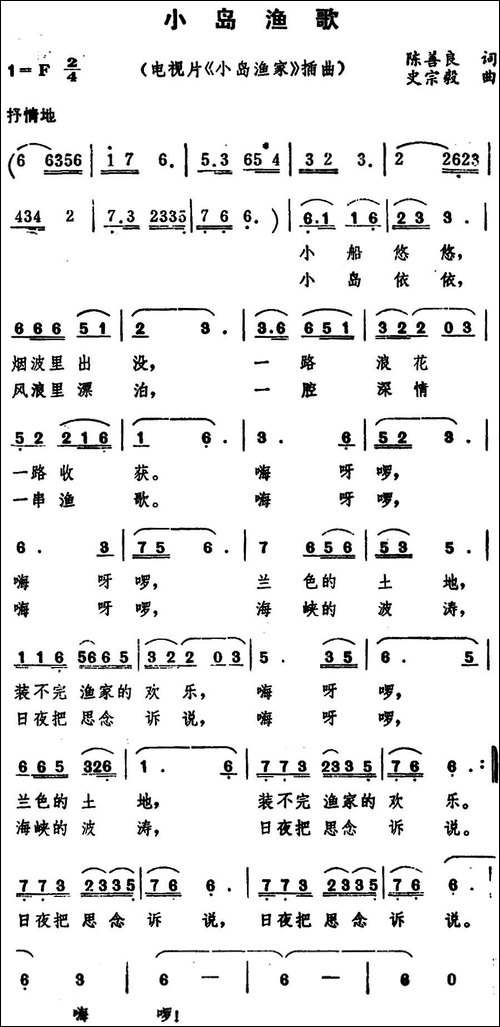 小岛渔歌
1=F 2/4 (电视片《小岛渔家》插曲) 陈善良 词
史宗毅 曲
抒情地
(6 6356 | i 7 6. | 5.3 65 4 | 3 2 3. | 2 2623 |
434 2 | 7.3 2335 | 7 6 6. ) | 6.1 1 6 | 2 3 3. |
小 船 悠 悠,
小 岛 依 依,
6 6 6 5 1 | 2 3. | 3.6 6 5 1 | 3 2 2 0 3 |
烟波里出 没, 一 路 浪 花
风浪里漂 泊, 一 腔 深 情
5 2 2 1 6 | 1 6. | 3. 6 | 5 2 3. |
一路收 获。 嗨 呀 啰,
一串渔 歌。 嗨 呀 啰,
6. 3 | 7 5 6. | 7 6 5 6 | 5 3 5. |
嗨 呀 啰, 兰 色的 土 地,
嗨 呀 啰, 海 峡的 波 涛,
1 1 6 5665 | 3 2 2 0 3 | 5. 3 5 | 6. 5 |
装不完 渔家的 欢 乐, 嗨 呀 啰,
日夜把 思念 诉 说, 嗨 呀 啰,
6 6 5 326 | 1. 6 | 7 7 3 2335 | 7 6 6. :|
兰色的 土 地, 装不完 渔家的 欢 乐。
海峡的 波 涛, 日夜把 思念 诉 说。
7 7 3 2335 | 7 6 6. | 7 7 3 2335 | 7 6 6. |
日夜把 思念 诉 说, 日夜把 思念 诉 说。
6 3 | 6 — | 6 — | 6 0
嗨 啰!